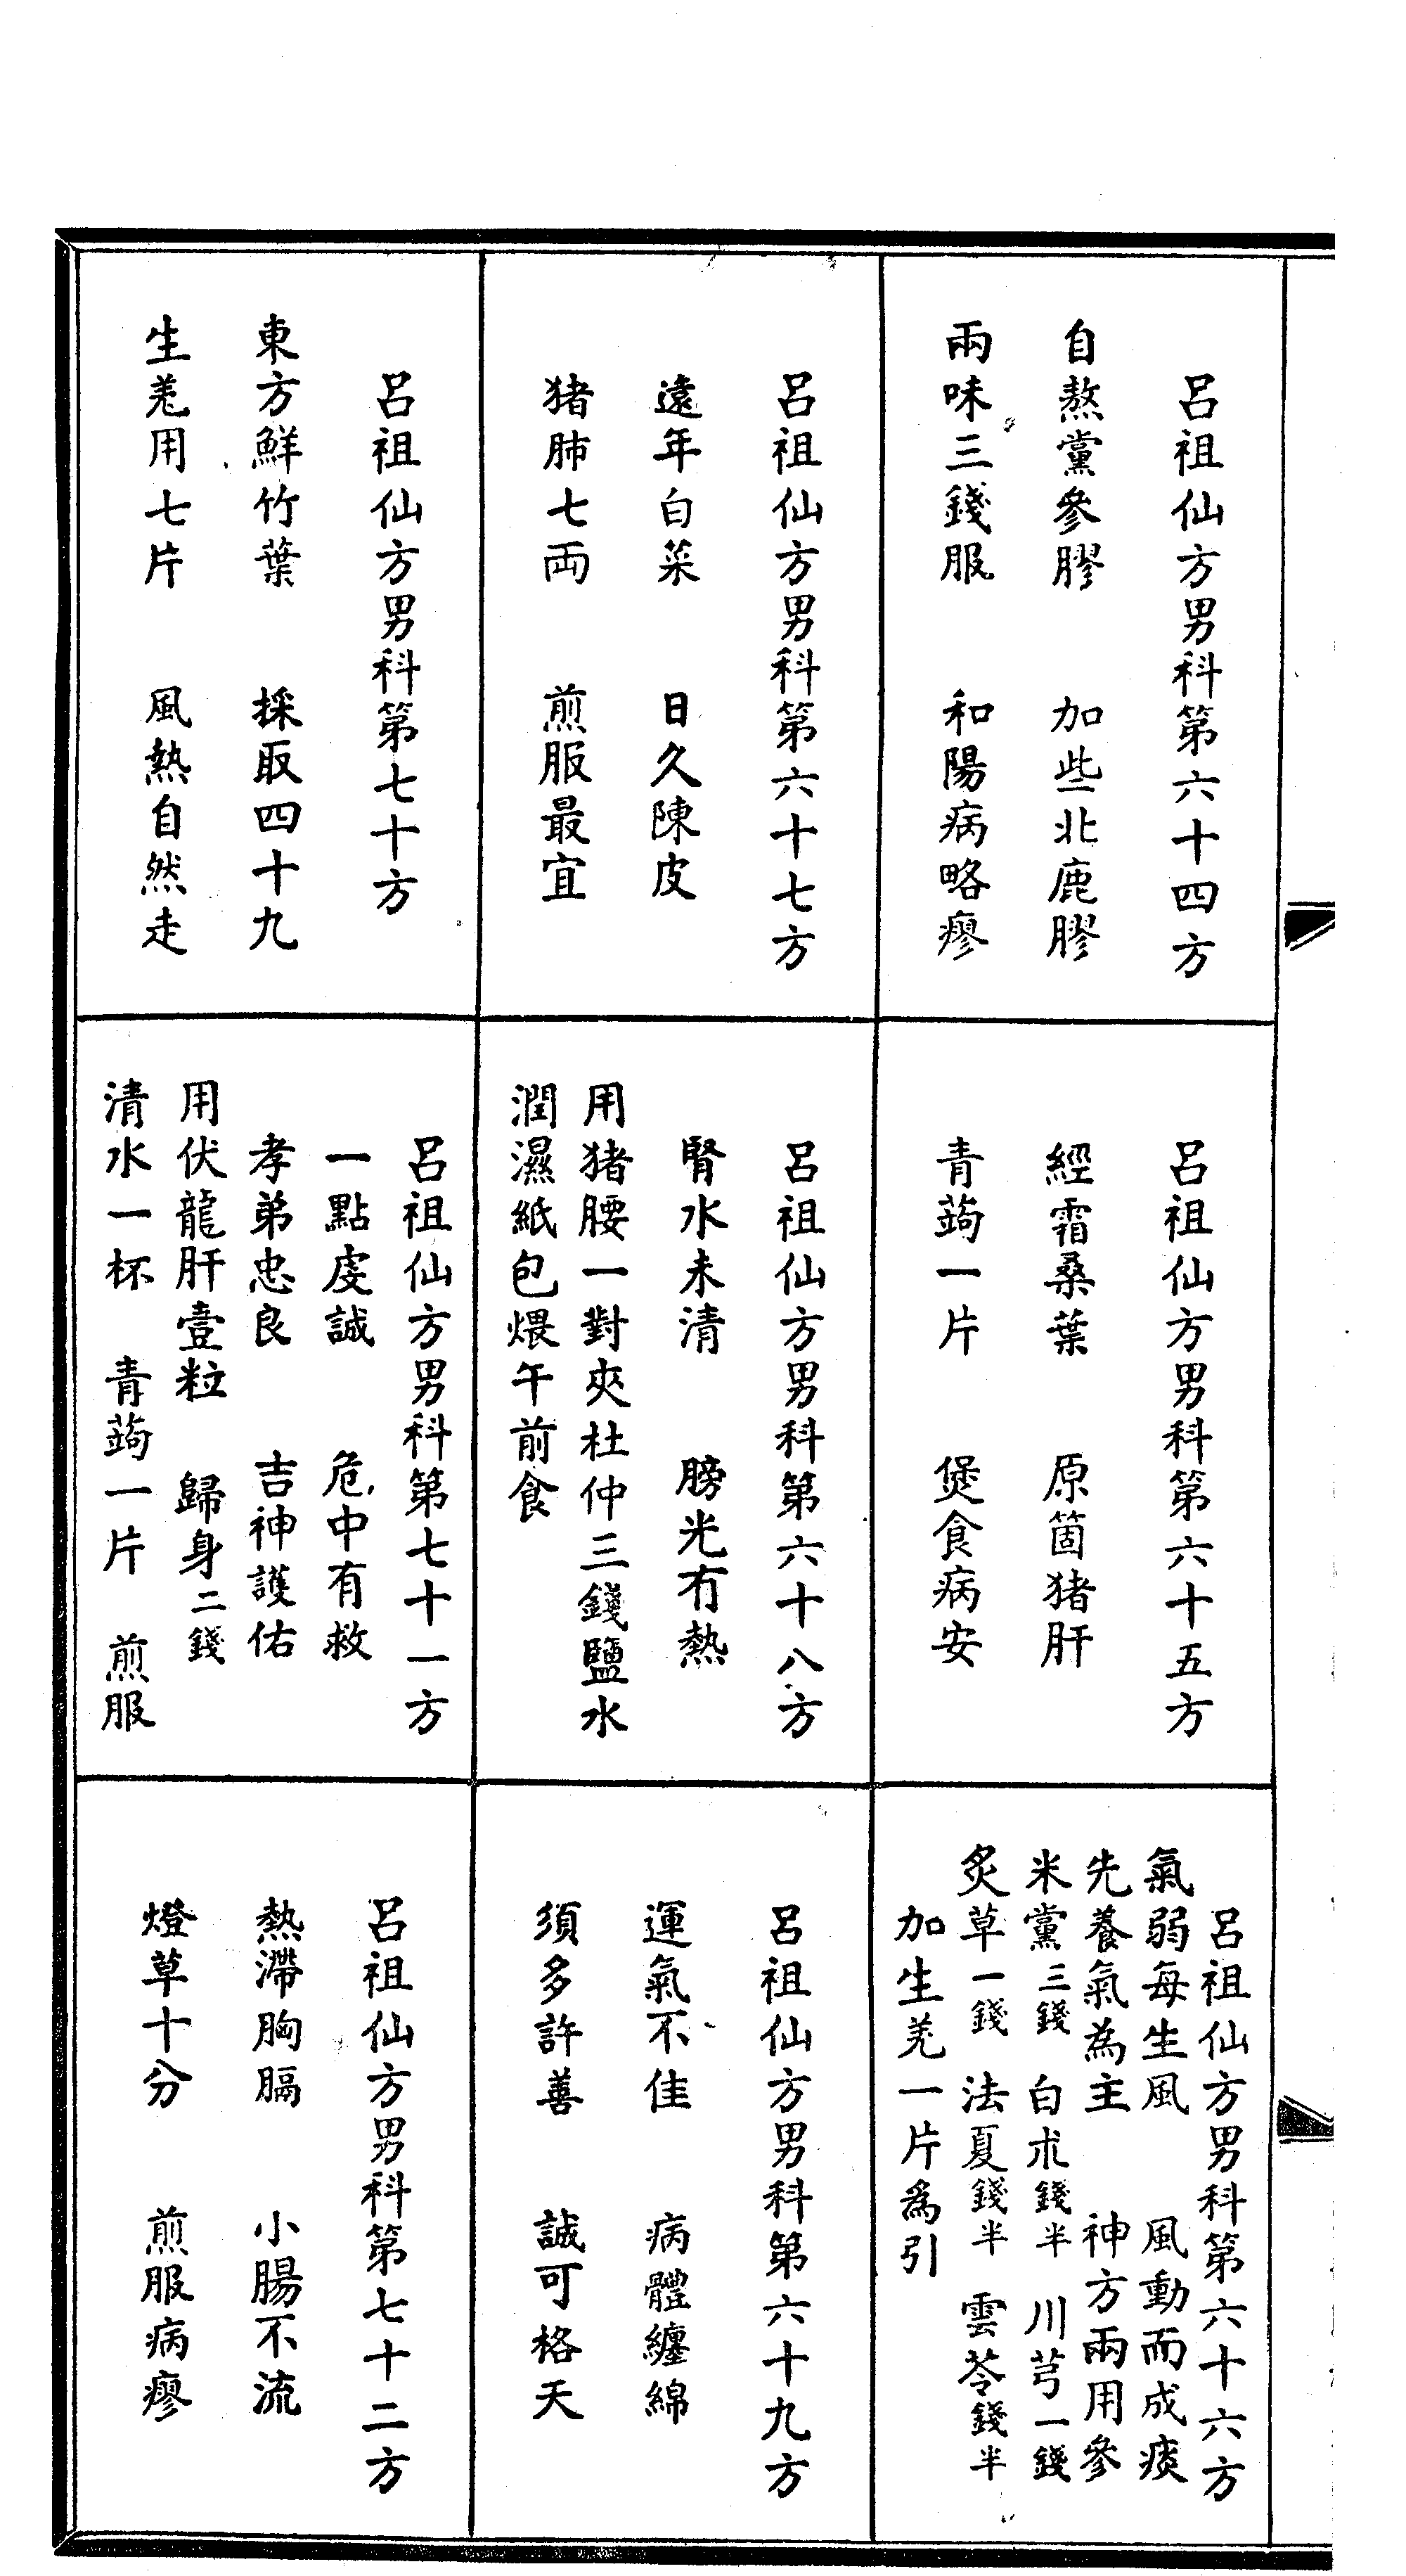 呂祖仙方男科第六十四方
自熬黨參膠　加些北鹿膠
兩味三錢服　和陽病略瘳
呂祖仙方男科第六十五方
經霜桑葉　原箇猪肝
青蒟一片　煲食病安
呂祖仙方男科第六十六方
氣弱每生風　風動而成痰
先養氣為主　神方兩用參
米黨三錢　白朮錢半　川芎一錢
炙草一錢　法夏錢半　雲苓錢半
加生羗一片為引
呂祖仙方男科第六十七方
遠年白菜　日久陳皮
猪肺七両　煎服最宜
呂祖仙方男科第六十八方
腎水未清　膀光冇熱
用猪腰一對夾杜仲三錢鹽水
潤濕紙包煨午前食
呂祖仙方男科第六十九方
運氣不佳　病體纏綿
須多許善　誠可格天
呂祖仙方男科第七十方
東方鮮竹葉　採取四十九
生羗用七片　風熱自然走
呂祖仙方男科第七十一方
一點虔誠　危中有救
孝弟忠良　吉神護佑
用伏龍肝壹粒　歸身二錢
清水一杯　青蒟一片　煎服
呂祖仙方男科第七十二方
熱滯胸膈　小腸不流
燈草十分　煎服病瘳